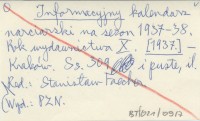 Informacyjny kalendarz
narciarski na sezon 1937-38.
Rok wydawnictwa X. [1937] -
Kraków. Ss. 309 i puste, il.
Red: Stanisław Faecher.
Wyd: PZN.